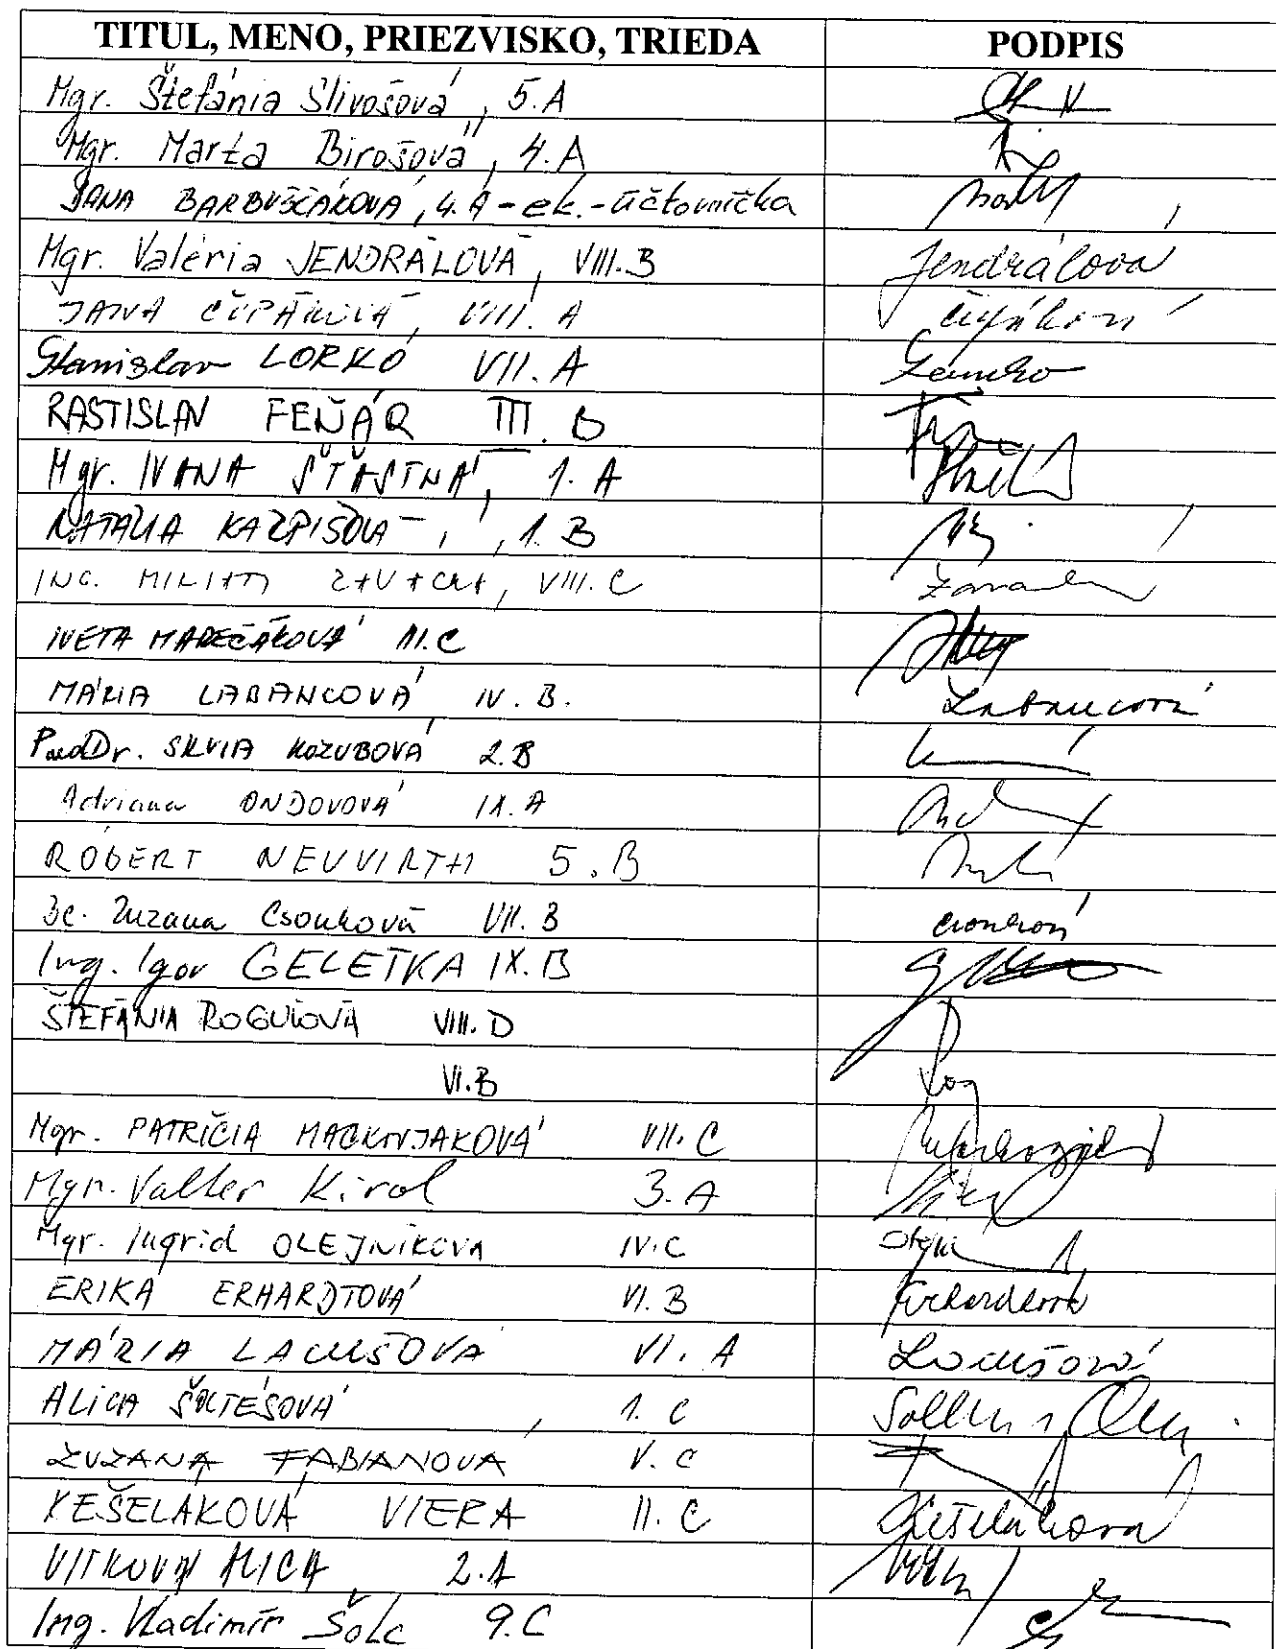 TITUL, MENO, PRIEZVISKO, TRIEDA PODPIS
Mgr. Štefánia Slivošová, 5.A
Mgr. Marta Birošová, 4.A
JANA BARBUŠČÁKOVÁ, 4.A - ek. - účtovníčka
Mgr. Valéria JENDRÁLOVÁ, VIII.B Jendrálová
JANA ČUPÁKOVÁ, VIII. A
Stanislav LORKO VII.A
RASTISLAV FEŇÁR III. B
Mgr. IVANA ŠŤASTNÁ, 1. A
NATÁLIA 1. B
ING. MILAN VIII. C
IVETA MAREČÁKOVÁ III.C
MÁRIA LABANCOVÁ IV. B. Labancová
PaedDr. SILVIA KOZUBOVÁ 2.B
Adriana ONDOVOVÁ IX.A
RÓBERT NEUVIRTH 5.B
Bc. Zuzana Csonková VII.B
Ing. Igor GELETKA IX.B
ŠTEFÁNIA ROGUĽOVÁ VIII.D
VI.B
Mgr. PATRÍCIA VII.C
Mgr. Valter Kirol 3.A
Mgr. Ingrid OLEJNÍKOVÁ IV.C
ERIKA ERHARDTOVÁ VI.B Erhardtová
MÁRIA LACUŠOVÁ VI. A Lacušová
ALICA ŠOLTÉSOVÁ, 1. C
ZUZANA FABIANOVA V. C
KEŠELÁKOVÁ VIERA II. C Kešeláková
VITKOVÁ ALICA 2.A
Ing. Vladimír Šolc 9.C